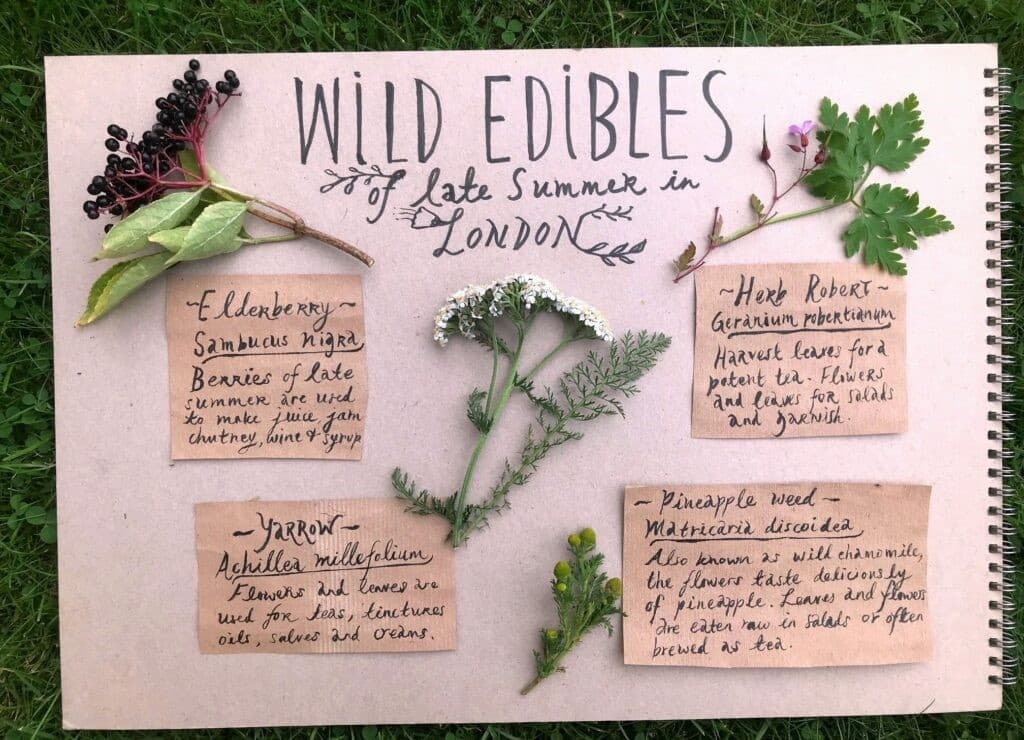 WILD EDIBLES
of late Summer in
LONDON
~Elderberry~
Sambucus nigra
Berries of late
summer are used
to make juice, jam
chutney, wine & syrup
~Herb Robert~
Geranium robertianum
Harvest leaves for a
potent tea. Flowers
and leaves for salads
and garnish.
~Yarrow~
Achillea millefolium
Flowers and leaves are
used for teas, tinctures
oils, salves and creams.
~Pineapple weed~
Matricaria discoidea
Also known as wild chamomile,
the flowers taste deliciously
of pineapple. Leaves and flowers
are eaten raw in salads or often
brewed as tea.